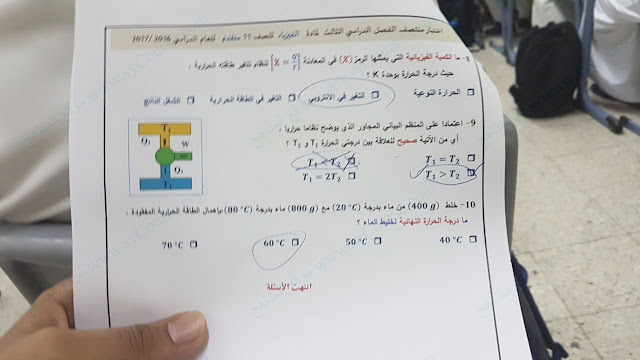 اختبار منتصف الفصل الدراسي الثالث لمادة الفيزياء للصف 11 متقدم للعام الدراسي 2016 / 2017
8- ما الكمية الفيزيائية التي يمثلها الرمز (X) في المعادلة [X = Q/T] لنظام تتغير طاقته الحرارية ،
حيث درجة الحرارة بوحدة K ؟
الحرارة النوعية التغير في الانتروبي التغير في الطاقة الحرارية الشغل الناتج
9- اعتمادا على المنظم البياني المجاور الذي يوضح نظاما حراريا ،
أي من الآتية صحيح للعلاقة بين درجتي الحرارة T₁ و T₂ ؟
T₁ = T₂ T₁ < T₂
T₁ > T₂ T₁ = 2T₂
W
10- خلط (400 g) من ماء بدرجة (20 °C) مع (800 g) ماء بدرجة (80 °C) بإهمال الطاقة الحرارية المفقودة ،
ما درجة الحرارة النهائية لخليط الماء ؟
40 °C 50 °C 60 °C 70 °C
انتهت الأسئلة